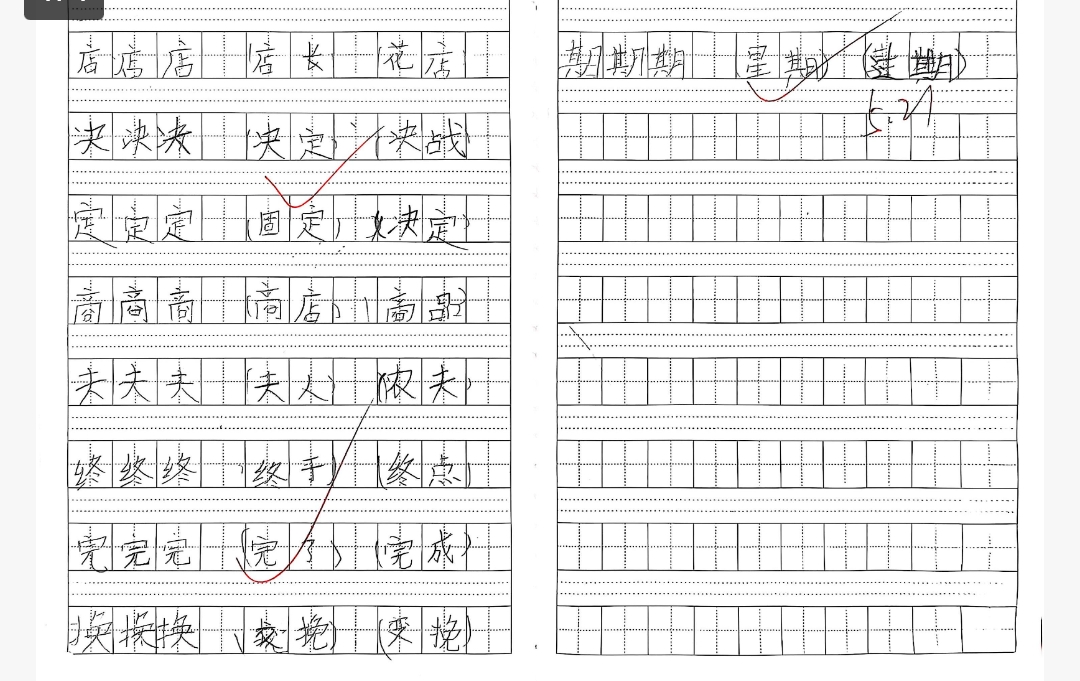 店店店 (店长) (花店)
决决决 (决定) (决战)
定定定 (固定) (决定)
商商商 (商店) (商品)
夫夫夫 (夫人) (农夫)
终终终 (终于) (终点)
完完完 (完了) (完成)
换换换 (挽) (变挽)
期期期 (星期) (星期)
5.21